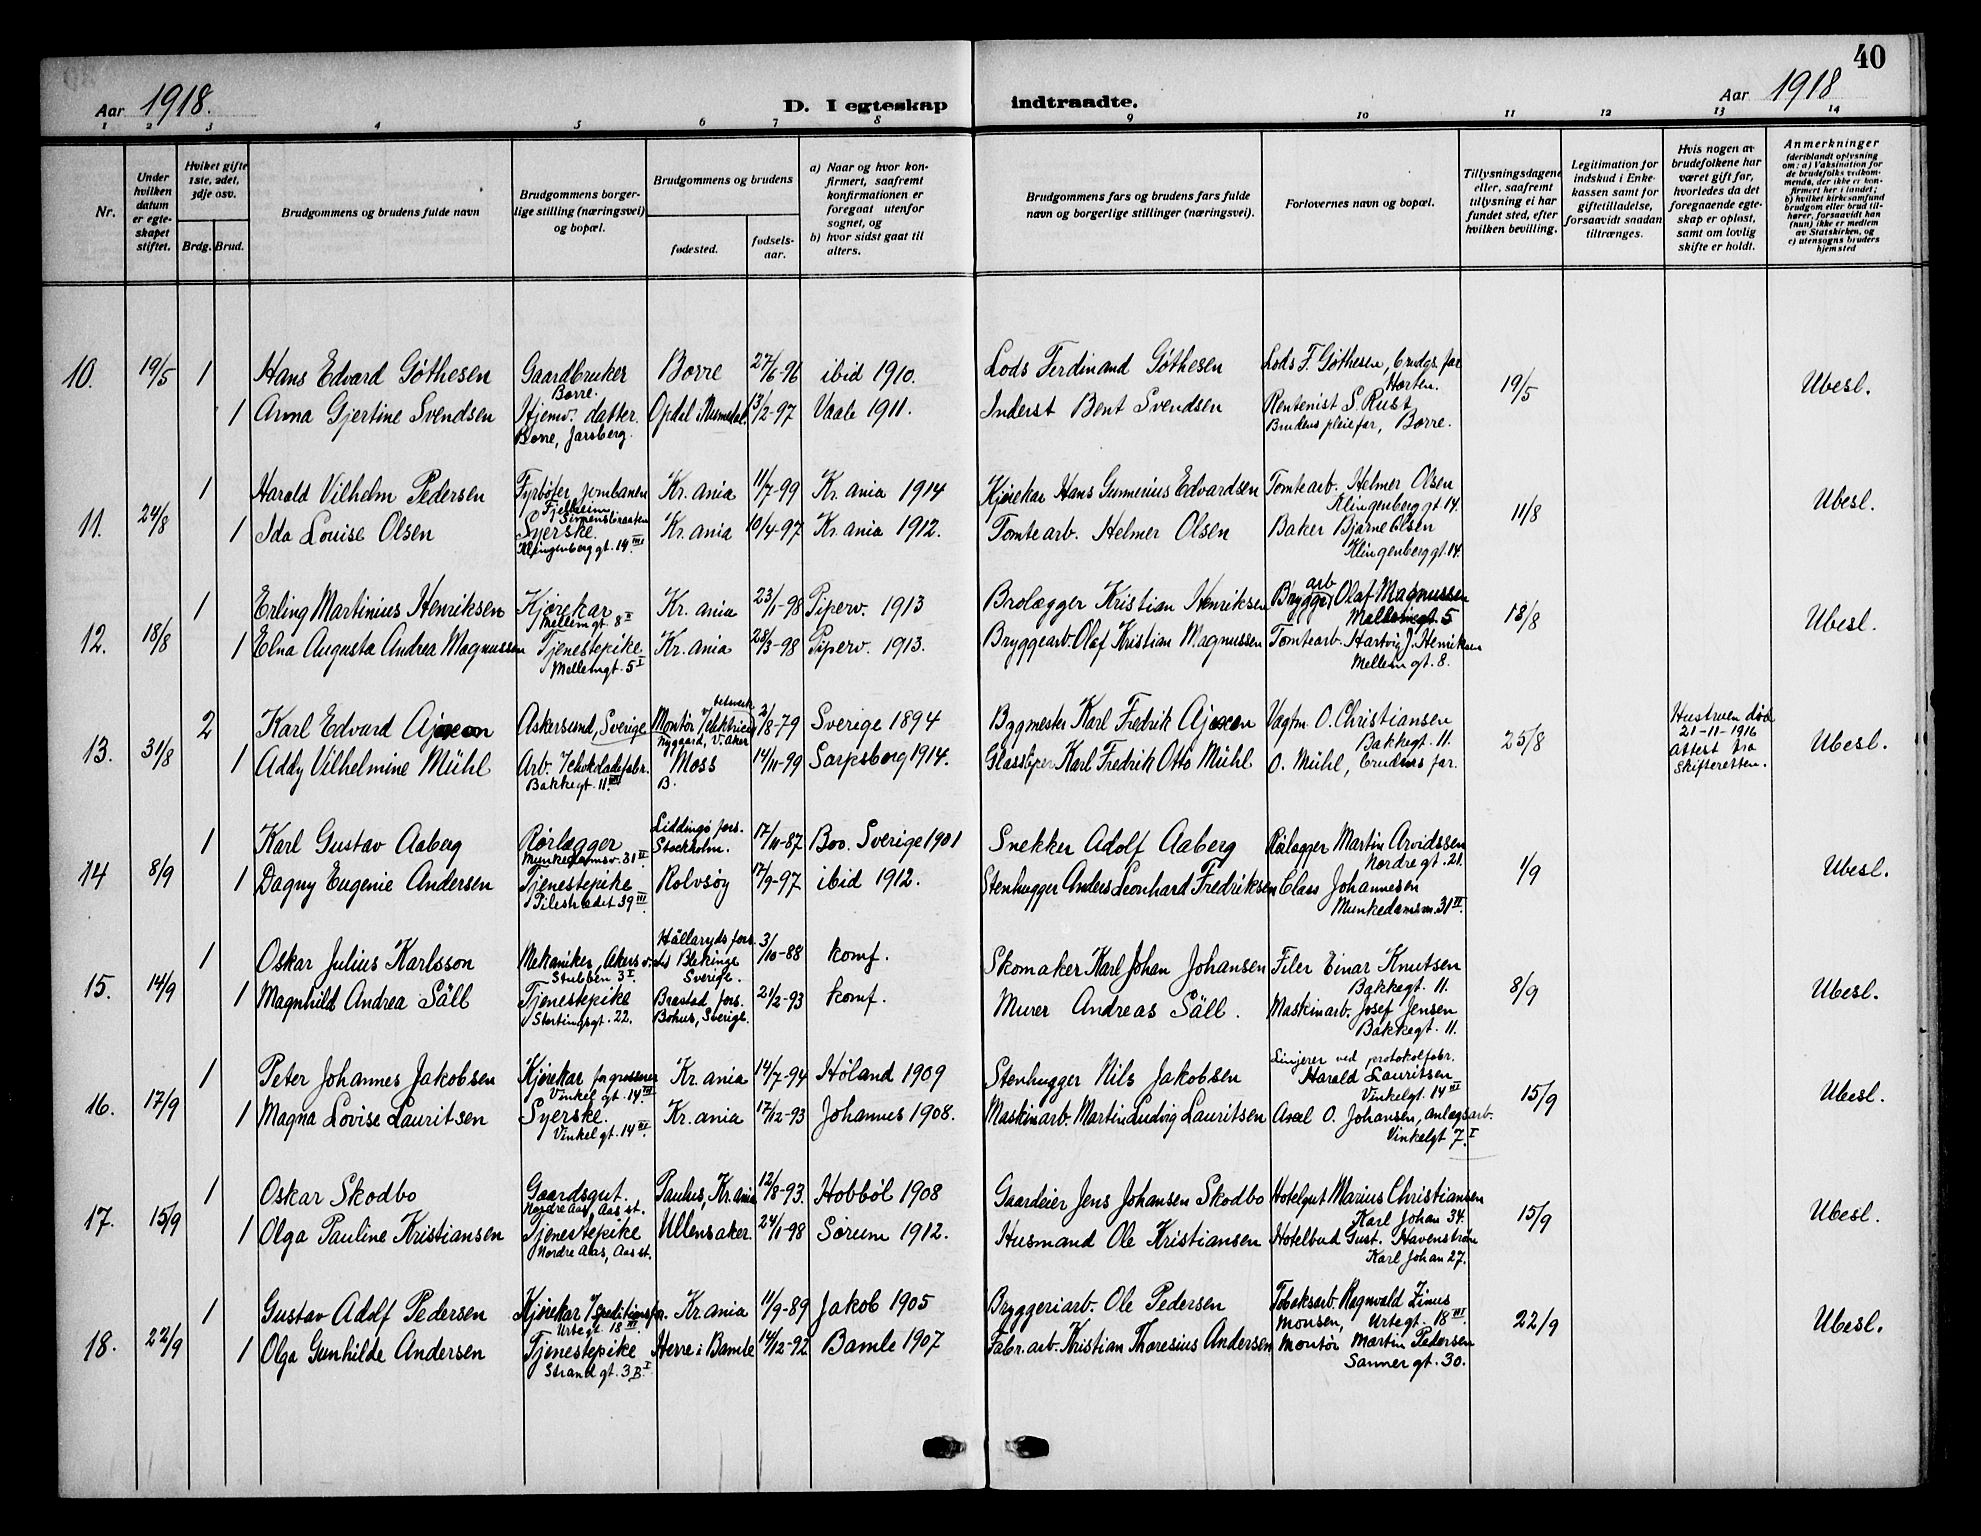 40
Aar 1918.
D. I egteskap indtraadte.
Aar 1918
1 2 3 4 5 6 7 8 9 10 11 12 13 14
Nr.
Under hvilken datum er egteskapet stiftet.
Hvilket gifte 1ste, 2det, 3dje osv.
Brdg. Brud.
Brudgommens og brudens fulde navn
Brudgommens borgerlige stilling (næringsvei) og bopæl.
Brudgommens og brudens
fødested.
fødselsaar.
a) Naar og hvor konfirmert, saafremt konfirmationen er foregaat utenfor sognet, og
b) hvor sidst gaat til alters.
Brudgommens fars og brudens fars fulde navn og borgerlige stillinger (næringsvei).
Forlovernes navn og bopæl.
Tillysningsdagene eller, saafremt tillysning ei har fundet sted, efter hvilken bevilling.
Legitimation for indskud i Enkekassen samt for giftetilladelse, forsaavidt saadan tiltrænges.
Hvis nogen av brudefolkene har været gift før, hvorledes da det foregaaende egteskap er opløst, samt om lovlig skifte er holdt.
Anmerkninger
(deriblandt oplysning om: a) Vaksination for de brudefolks vedkommende, der ikke er konfirmert her i landet; b) hvilket kirkesamfund brudgom eller brud tilhører, forsaavidt han (hun) ikke er medlem av Statskirken, og c) utensogns bruders hjemsted
10. 19/5 1 Hans Edvard Gøthesen Gaardbruker Borre. Borre 27/6-96 ibid 1910. Lods Ferdinand Gøthesen Lods F. Gøthesen, brudgs. far Horten. 19/5 Ubesl.
1 Anna Gjertine Svendsen Hjemv. datter. Borre, Jarlsberg. Opdal i Numedal. 13/2-97 Vaale 1911. Inderst Bent Svendsen Rentenist S. Rust Brudens pleiefar, Borre.
11. 24/8 1 Harald Vilhelm Pedersen Fyrbøter jernbanen Fjellheim Simensbraaten Kr.ania 11/7-99 Kr.ania 1914 Kjørekar Hans Gunnerius Edvardsen Tomtearb. Helmer Olsen Klingenberg gt 14. 11/8 Ubesl.
1 Ida Louise Olsen Syerske. Klingenberg gt. 14 III Kr.ania 10/4-97 Kr.ania 1912. Tomtearb. Helmer Olsen Baker Bjarne Olsen Klingenberg gt. 14.
12. 18/8 1 Erling Martinius Henriksen Kjørekar Mellemgt. 8 I Kr.ania 23/1-98 Piperv. 1913 Brolægger Kristian Henriksen Bryggearb Olaf Magnussen Mellemgt 5 18/8 Ubesl.
1 Elna Augusta Andrea Magnussen Tjenestepike Mellemgt. 5 I Kr.ania 28/3-98 Piperv. 1913. Bryggearb. Olaf Kristian Magnussen Tomtearb. Hartvig J. Henriksen Mellem gt. 8.
13. 31/8 2 Karl Edvard Askersund, Sverige Montør Nygaard, V. Aker 2/8-79 Sverige 1894 Bygmester Karl Fredrik Vagtm. O. Christiansen Bakkegt. 11. 25/8 Hustruen død 21-11-1916 Attest fra Skifteretten. Ubesl.
1 Addy Vilhelmine Mühl Arb. i chokoladefabr. Bakkegt. 11. III Moss B. 14/11-99 Sarpsborg 1914. Glassliper Karl Fredrik Otto Mühl O. Mühl, brudens far.
14 8/9 1 Karl Gustav Aaberg Rørlægger Munkedamsv. 31 II Liddingö fors. Stockholm. 17/11-87 Boo. Sverige 1901 Snekker Adolf Aaberg Rølægger Martin Arvidssen Nordre gt. 21. 1/9 Ubesl.
1 Dagny Eugenie Andersen Tjenestepike Pilestrædet 39 III Rolvsøy 17/9-97 ibid 1912. Stenhugger Anders Leonhard Fredriksen Class Johannesen Munkedamsv. 31 II.
15. 14/9 1 Oskar Julius Karlsson Mekaniker, Akers v.sted Stubben 3 I. Hällaryds fors. Blekinge Sverige. 3/10-88 komf. Skomaker Karl Johan Johansen Filer Einar Knutsen Bakkegt. 11. 8/9 Ubesl.
1 Magnhild Andrea Säll Tjenestepike Stortingsgt. 22. Brastad fors. Bohus, Sverige. 21/2-93 komf. Murer Andreas Säll. Maskinarb. Josef Jensen Bakkegt. 11.
16. 17/9 1 Peter Johannes Jakobsen Kjørekar for grosserer Vinkel gt. 14. III Kr.ania 14/7-94 Høland 1909 Stenhugger Nils Jakobsen Linjerer ved protokolfabr. Harald Lauritsen Vinkelgt. 14 III 15/9 Ubesl.
1 Magna Lovise Lauritsen Syerske. Vinkel gt. 14 III. Kr.ania 17/12-93 Johannes 1908. Maskinarb. Martin Ludvig Lauritsen Axel O. Johansen, anlægsarb. Vinkelgt 7. I
17. 15/9 1 Oskar Skodbo Gaardsgut. Nordre Aas, Aas st. Paulus, Kr.ania 12/8-93. Hobböl 1908 Gaardeier Jens Johansen Skodbo Hotelgut Marius Christiansen Karl Johan 34. 15/9 Ubesl.
1 Olga Pauline Kristiansen Tjenestepike Nordre Aas, Aas st. Ullensaker. 24/1-98 Sørum 1912. Husmand Ole Kristiansen Hotelbud Gust. Havenstrøm Karl Johan 27.
18. 22/9 1 Gustav Adolf Pedersen Kjørekar i speditionsfor. Urtegt. 18 III. Kr.ania 11/9-89 Jakob 1905 Bryggeriarb. Ole Pedersen Tobaksarb. Ragnvald Linus Monsen, Urtegt. 18 III 22/9 Ubesl.
1 Olga Gunhilde Andersen Tjenestepike Strand gt. 3 B. I Herre i Bamle 14/12-92 Bamle 1907 Fabr.arb. Kristian Thoresius Andersen Montør Martin Pedersen Sanner gt. 30.